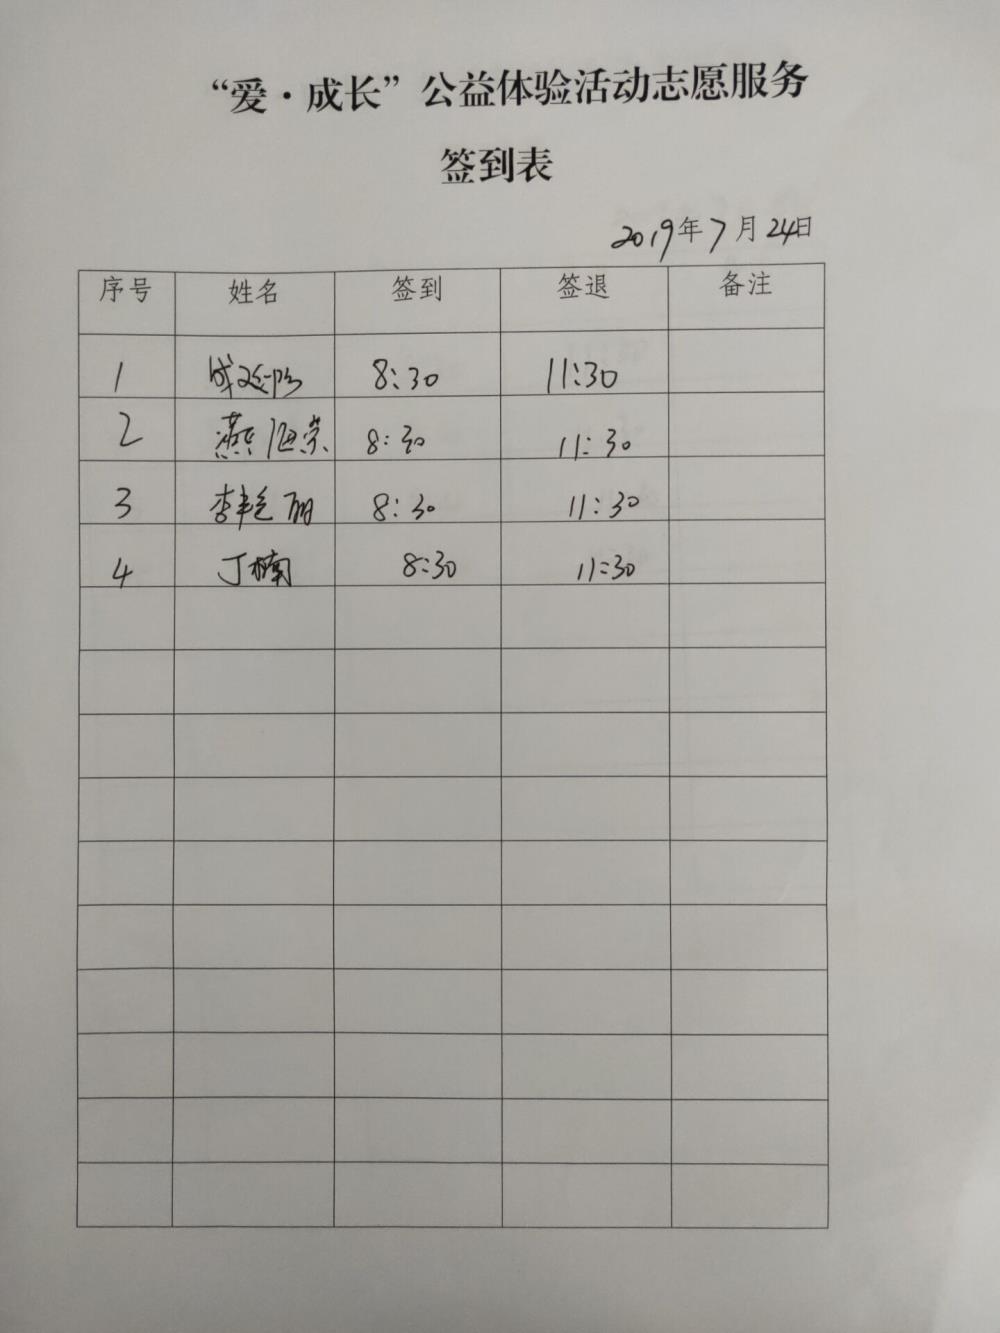 “爱·成长”公益体验活动志愿服务
签到表
2019年7月24日
序号 姓名 签到 签退 备注
1 8:30 11:30
2 燕恒荣 8:30 11:30
3 李艳丽 8:30 11:30
4 丁楠 8:30 11:30